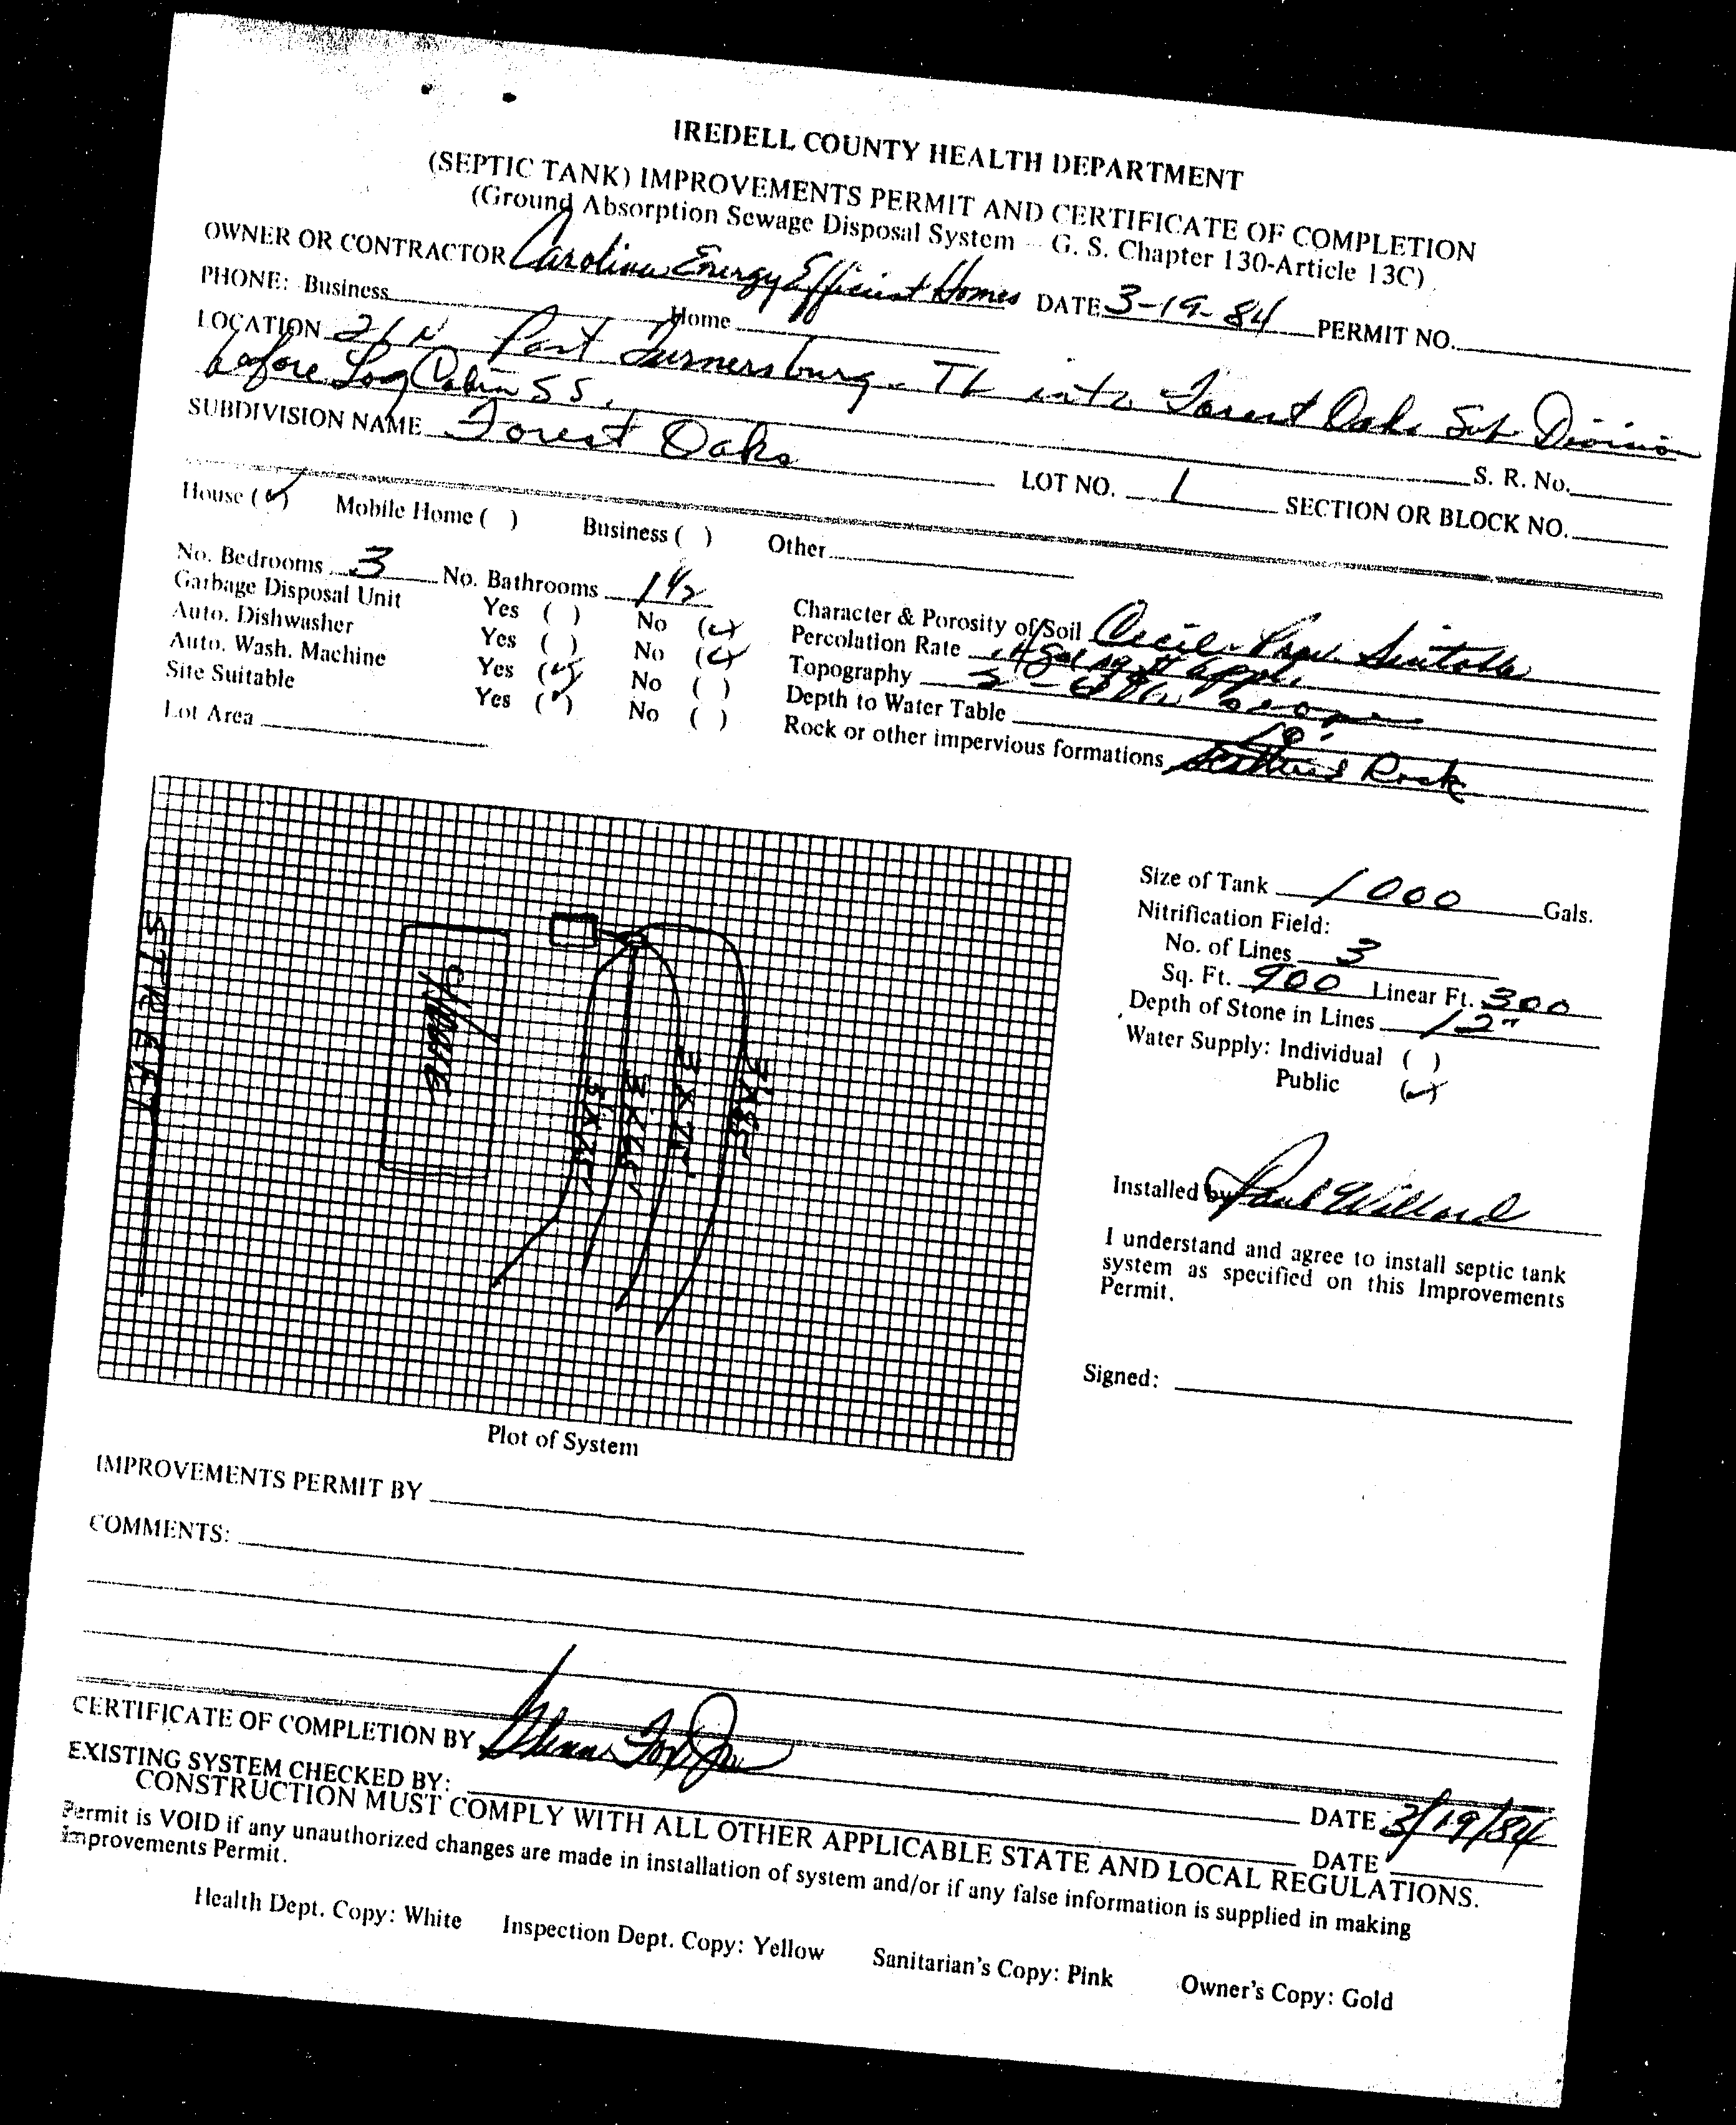 IREDELL COUNTY HEALTH DEPARTMENT
(SEPTIC TANK) IMPROVEMENTS PERMIT AND CERTIFICATE OF COMPLETION
(Ground Absorption Sewage Disposal System - G. S. Chapter 130-Article 13C)
OWNER OR CONTRACTOR Carolina Energy Efficient Homes DATE 3-19-84 PERMIT NO.
PHONE: Business Home
LOCATION 21 N Past Turnersburg - TL into Forest Oaks Sub Division
before Log Cabin S S. S. R. No.
SUBDIVISION NAME Forest Oaks LOT NO. 1 SECTION OR BLOCK NO.
House (✓) Mobile Home ( ) Business ( ) Other
No. Bedrooms 3 No. Bathrooms 1 1/2
Garbage Disposal Unit Yes ( ) No (✓)
Auto. Dishwasher Yes ( ) No (✓)
Auto. Wash. Machine Yes (✓) No ( )
Site Suitable Yes (✓) No ( )
Lot Area
Character & Porosity of Soil Cecil - Prov. Suitable
Percolation Rate .4 gal sq ft appl.
Topography slope
Depth to Water Table
Rock or other impervious formations Scattered Rock
STREET
HOUSE
3 X 75'
3 X 75'
3 X 70'
3 X 85'
Plot of System
Size of Tank 1000 Gals.
Nitrification Field:
No. of Lines 3
Sq. Ft. 900 Linear Ft. 300
Depth of Stone in Lines 12"
Water Supply: Individual ( )
Public (✓)
Installed by Paul Willard
I understand and agree to install septic tank
system as specified on this Improvements
Permit.
Signed:
IMPROVEMENTS PERMIT BY
COMMENTS:
CERTIFICATE OF COMPLETION BY DATE 3/19/84
EXISTING SYSTEM CHECKED BY: DATE
CONSTRUCTION MUST COMPLY WITH ALL OTHER APPLICABLE STATE AND LOCAL REGULATIONS.
Permit is VOID if any unauthorized changes are made in installation of system and/or if any false information is supplied in making
Improvements Permit.
Health Dept. Copy: White Inspection Dept. Copy: Yellow Sanitarian's Copy: Pink Owner's Copy: Gold